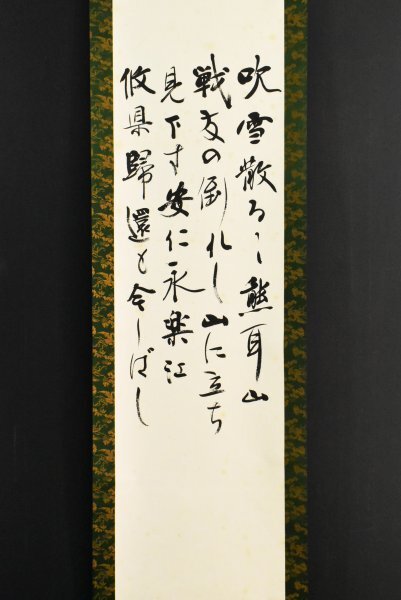 吹雪散る〻熊耳山
戦友の倒れし山に立ち
見下す安仁永楽江
攸県歸還も今しばし